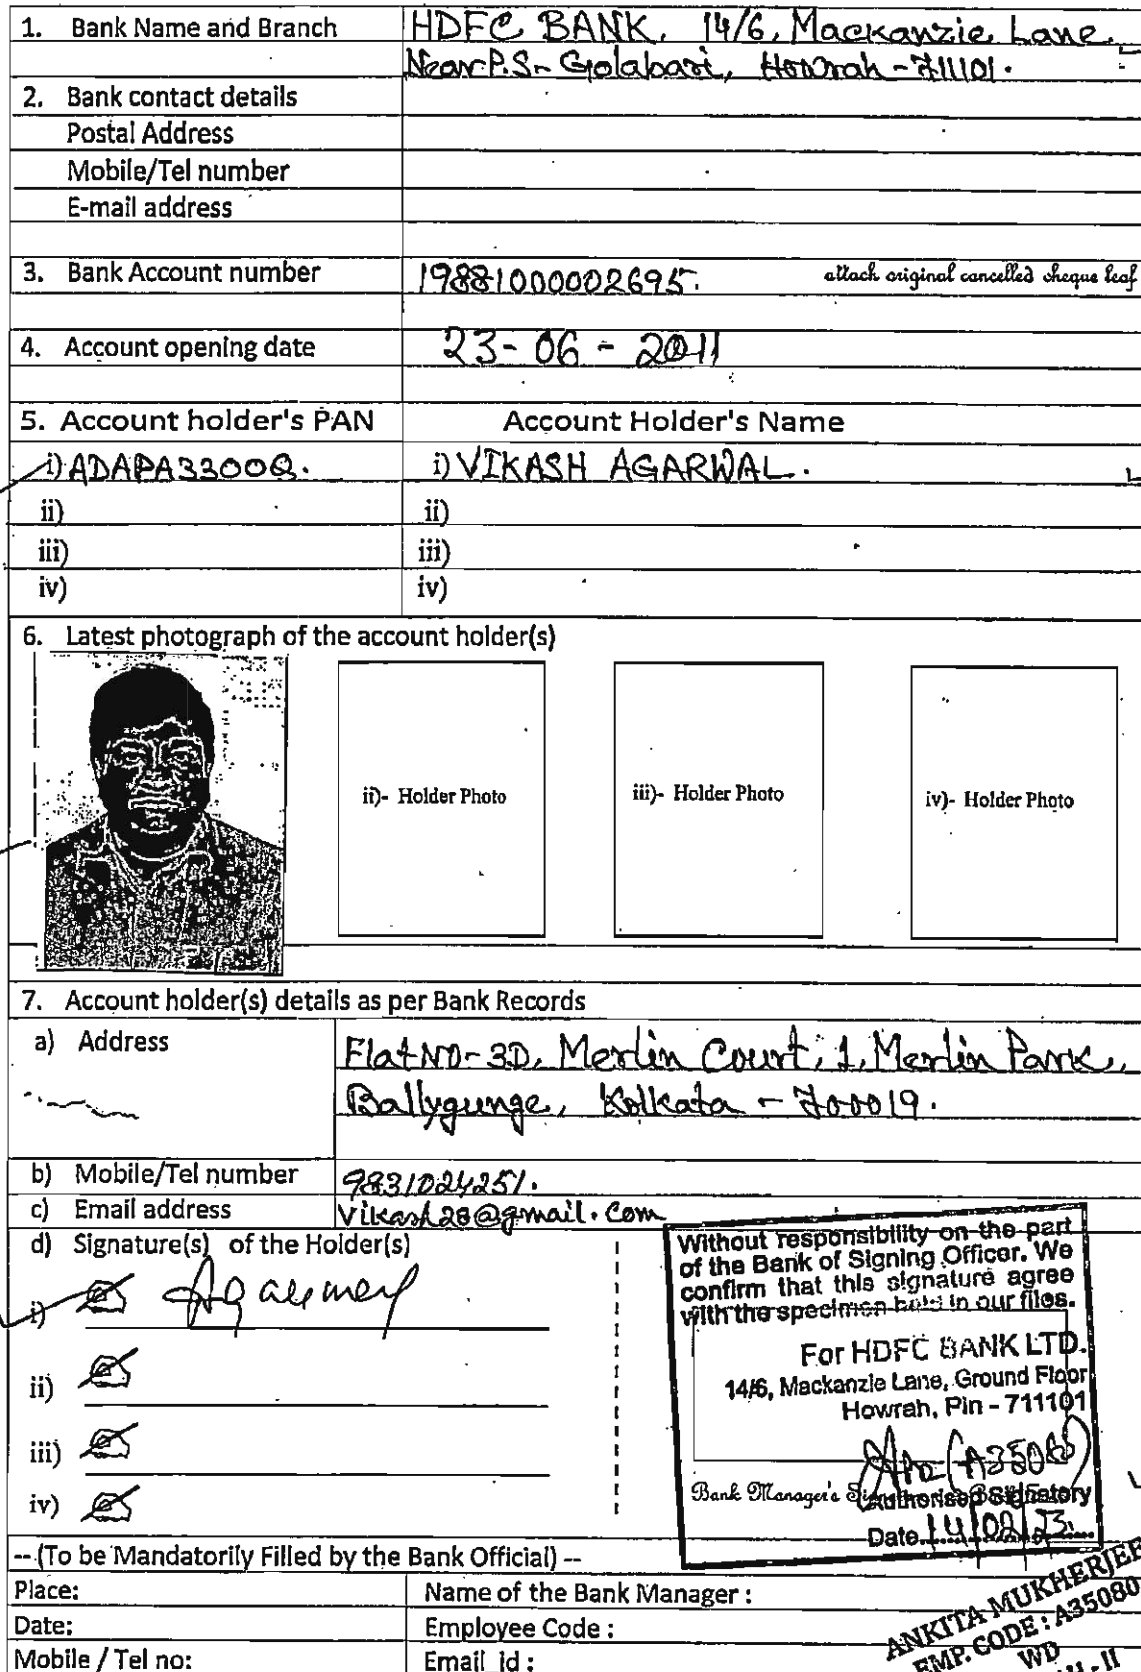 1. Bank Name and Branch HDFC BANK, 14/6, Mackanzie Lane,
Near P.S- Golabari, Howrah - 711101.
2. Bank contact details
Postal Address
Mobile/Tel number
E-mail address
3. Bank Account number 19881000002695. attach original cancelled cheque leaf
4. Account opening date 23-06-2011
5. Account holder's PAN Account Holder's Name
i) ADAPA3300Q. i) VIKASH AGARWAL.
ii) ii)
iii) iii)
iv) iv)
6. Latest photograph of the account holder(s)
ii)- Holder Photo iii)- Holder Photo iv)- Holder Photo
7. Account holder(s) details as per Bank Records
a) Address Flat NO-3D, Merlin Court, 1, Merlin Park,
Ballygunge, Kolkata - 700019.
b) Mobile/Tel number 9831024251.
c) Email address vikash28@gmail.com
d) Signature(s) of the Holder(s)
i)
ii)
iii)
iv)
Without responsibility on the part
of the Bank of Signing Officer. We
confirm that this signature agree
with the specimen held in our files.
For HDFC BANK LTD.
14/6, Mackanzie Lane, Ground Floor
Howrah, Pin - 711101
Bank Manager's
Authorised Signatory
Date 14/02/23
-- (To be Mandatorily Filled by the Bank Official) --
Place: Name of the Bank Manager :
Date: Employee Code :
Mobile / Tel no: Email id :
ANKITA MUKHERJEE
EMP. CODE : A35080
WD